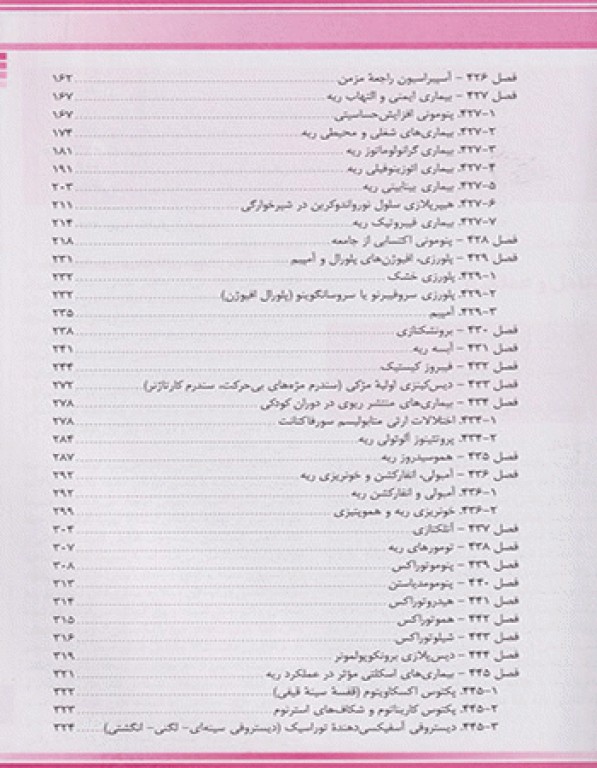 فصل ۴۲۶ - آسپیراسیون راجعهٔ مزمن ۱۶۲
فصل ۴۲۷ - بیماری ایمنی و التهاب ریه ۱۶۷
۴۲۷-۱. پنومونی افزایش‌حساسیتی ۱۶۷
۴۲۷-۲. بیماری‌های شغلی و محیطی ریه ۱۷۴
۴۲۷-۳. بیماری گرانولوماتوز ریه ۱۸۱
۴۲۷-۴. بیماری ائوزینوفیلی ریه ۱۹۱
۴۲۷-۵. بیماری بینابینی ریه ۲۰۳
۴۲۷-۶. هیپرپلازی سلول نورواندوکرین در شیرخوارگی ۲۱۱
۴۲۷-۷. بیماری فیبروتیک ریه ۲۱۴
فصل ۴۲۸ - پنومونی اکتسابی از جامعه ۲۱۸
فصل ۴۲۹ - پلورزی، افیوژن‌های پلورال و آمپیم ۲۳۱
۴۲۹-۱. پلورزی خشک ۲۳۲
۴۲۹-۲. پلورزی سروفیبرنو یا سروسانگوینو (پلورال افیوژن) ۲۳۲
۴۲۹-۳. آمپیم ۲۳۵
فصل ۴۳۰ - برونشکتازی ۲۳۸
فصل ۴۳۱ - آبسه ریه ۲۴۱
فصل ۴۳۲ - فیبروز کیستیک ۲۴۴
فصل ۴۳۳ - دیس‌کینزی اولیهٔ مژکی (سندرم مژه‌های بی‌حرکت، سندرم کارتاژنر) ۲۷۲
فصل ۴۳۴ - بیماری‌های منتشر ریوی در دوران کودکی ۲۷۸
۴۳۴-۱. اختلالات ارثی متابولیسم سورفاکتانت ۲۷۸
۴۳۴-۲. پروتئینوز آلوئولی ریه ۲۸۴
فصل ۴۳۵ - هموسیدروز ریه ۲۸۷
فصل ۴۳۶ - آمبولی، انفارکشن و خونریزی ریه ۲۹۲
۴۳۶-۱. آمبولی و انفارکشن ریه ۲۹۲
۴۳۶-۲. خونریزی ریه و هموپتیزی ۲۹۹
فصل ۴۳۷ - آتلکتازی ۳۰۴
فصل ۴۳۸ - تومورهای ریه ۳۰۷
فصل ۴۳۹ - پنوموتوراکس ۳۰۸
فصل ۴۴۰ - پنومومدیاستن ۳۱۳
فصل ۴۴۱ - هیدروتوراکس ۳۱۴
فصل ۴۴۲ - هموتوراکس ۳۱۵
فصل ۴۴۳ - شیلوتوراکس ۳۱۶
فصل ۴۴۴ - دیس‌پلازی برونکوپولمونر ۳۱۹
فصل ۴۴۵ - بیماری‌های اسکلتی مؤثر در عملکرد ریه ۳۲۱
۴۴۵-۱. پکتوس اکسکاویتوم (قفسهٔ سینهٔ قیفی) ۳۲۲
۴۴۵-۲. پکتوس کاریناتوم و شکاف‌های استرنوم ۳۲۳
۴۴۵-۳. دیستروفی آسفیکسی‌دهندهٔ توراسیک (دیستروفی سینه‌ای- لگنی- انگشتی) ۳۲۴